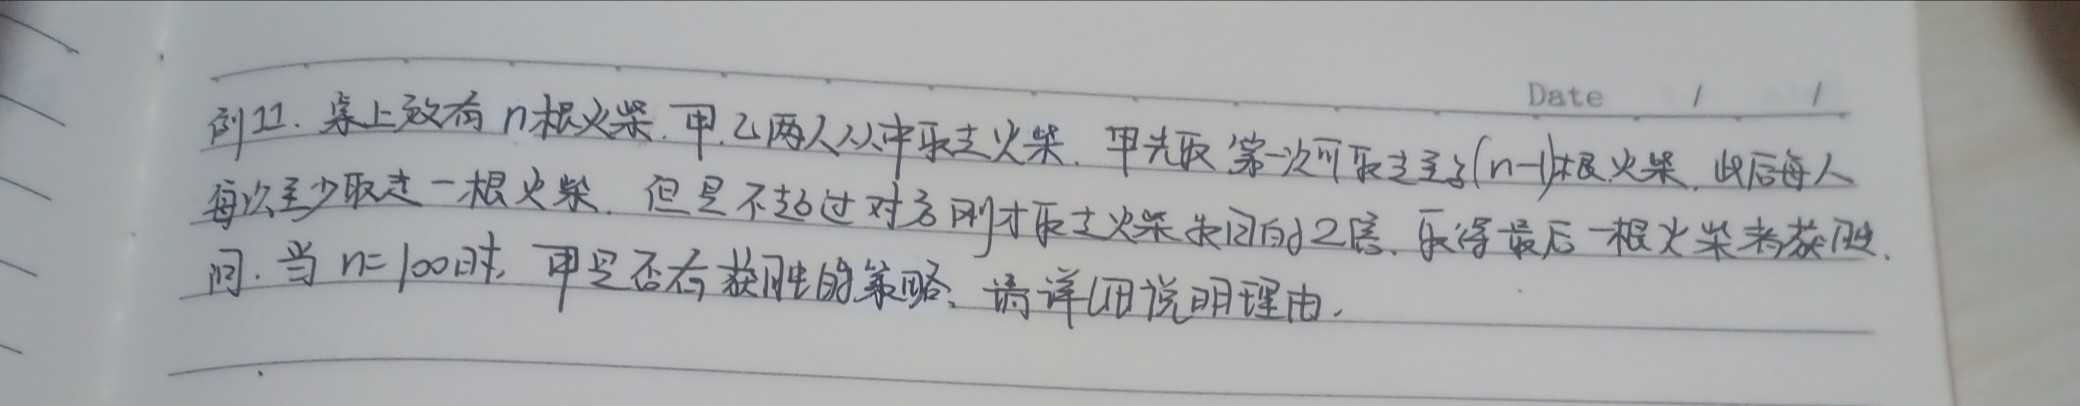 Date / /
例11. 桌上放有n根火柴.甲.乙两人从中取走火柴.甲先取 第一次可取走至多(n-1)根火柴.此后每人
每次至少取走一根火柴.但是不超过对方刚才取走火柴数目的2倍.取得最后一根火柴者获胜.
问.当n=100时,甲是否有获胜的策略.请详细说明理由.